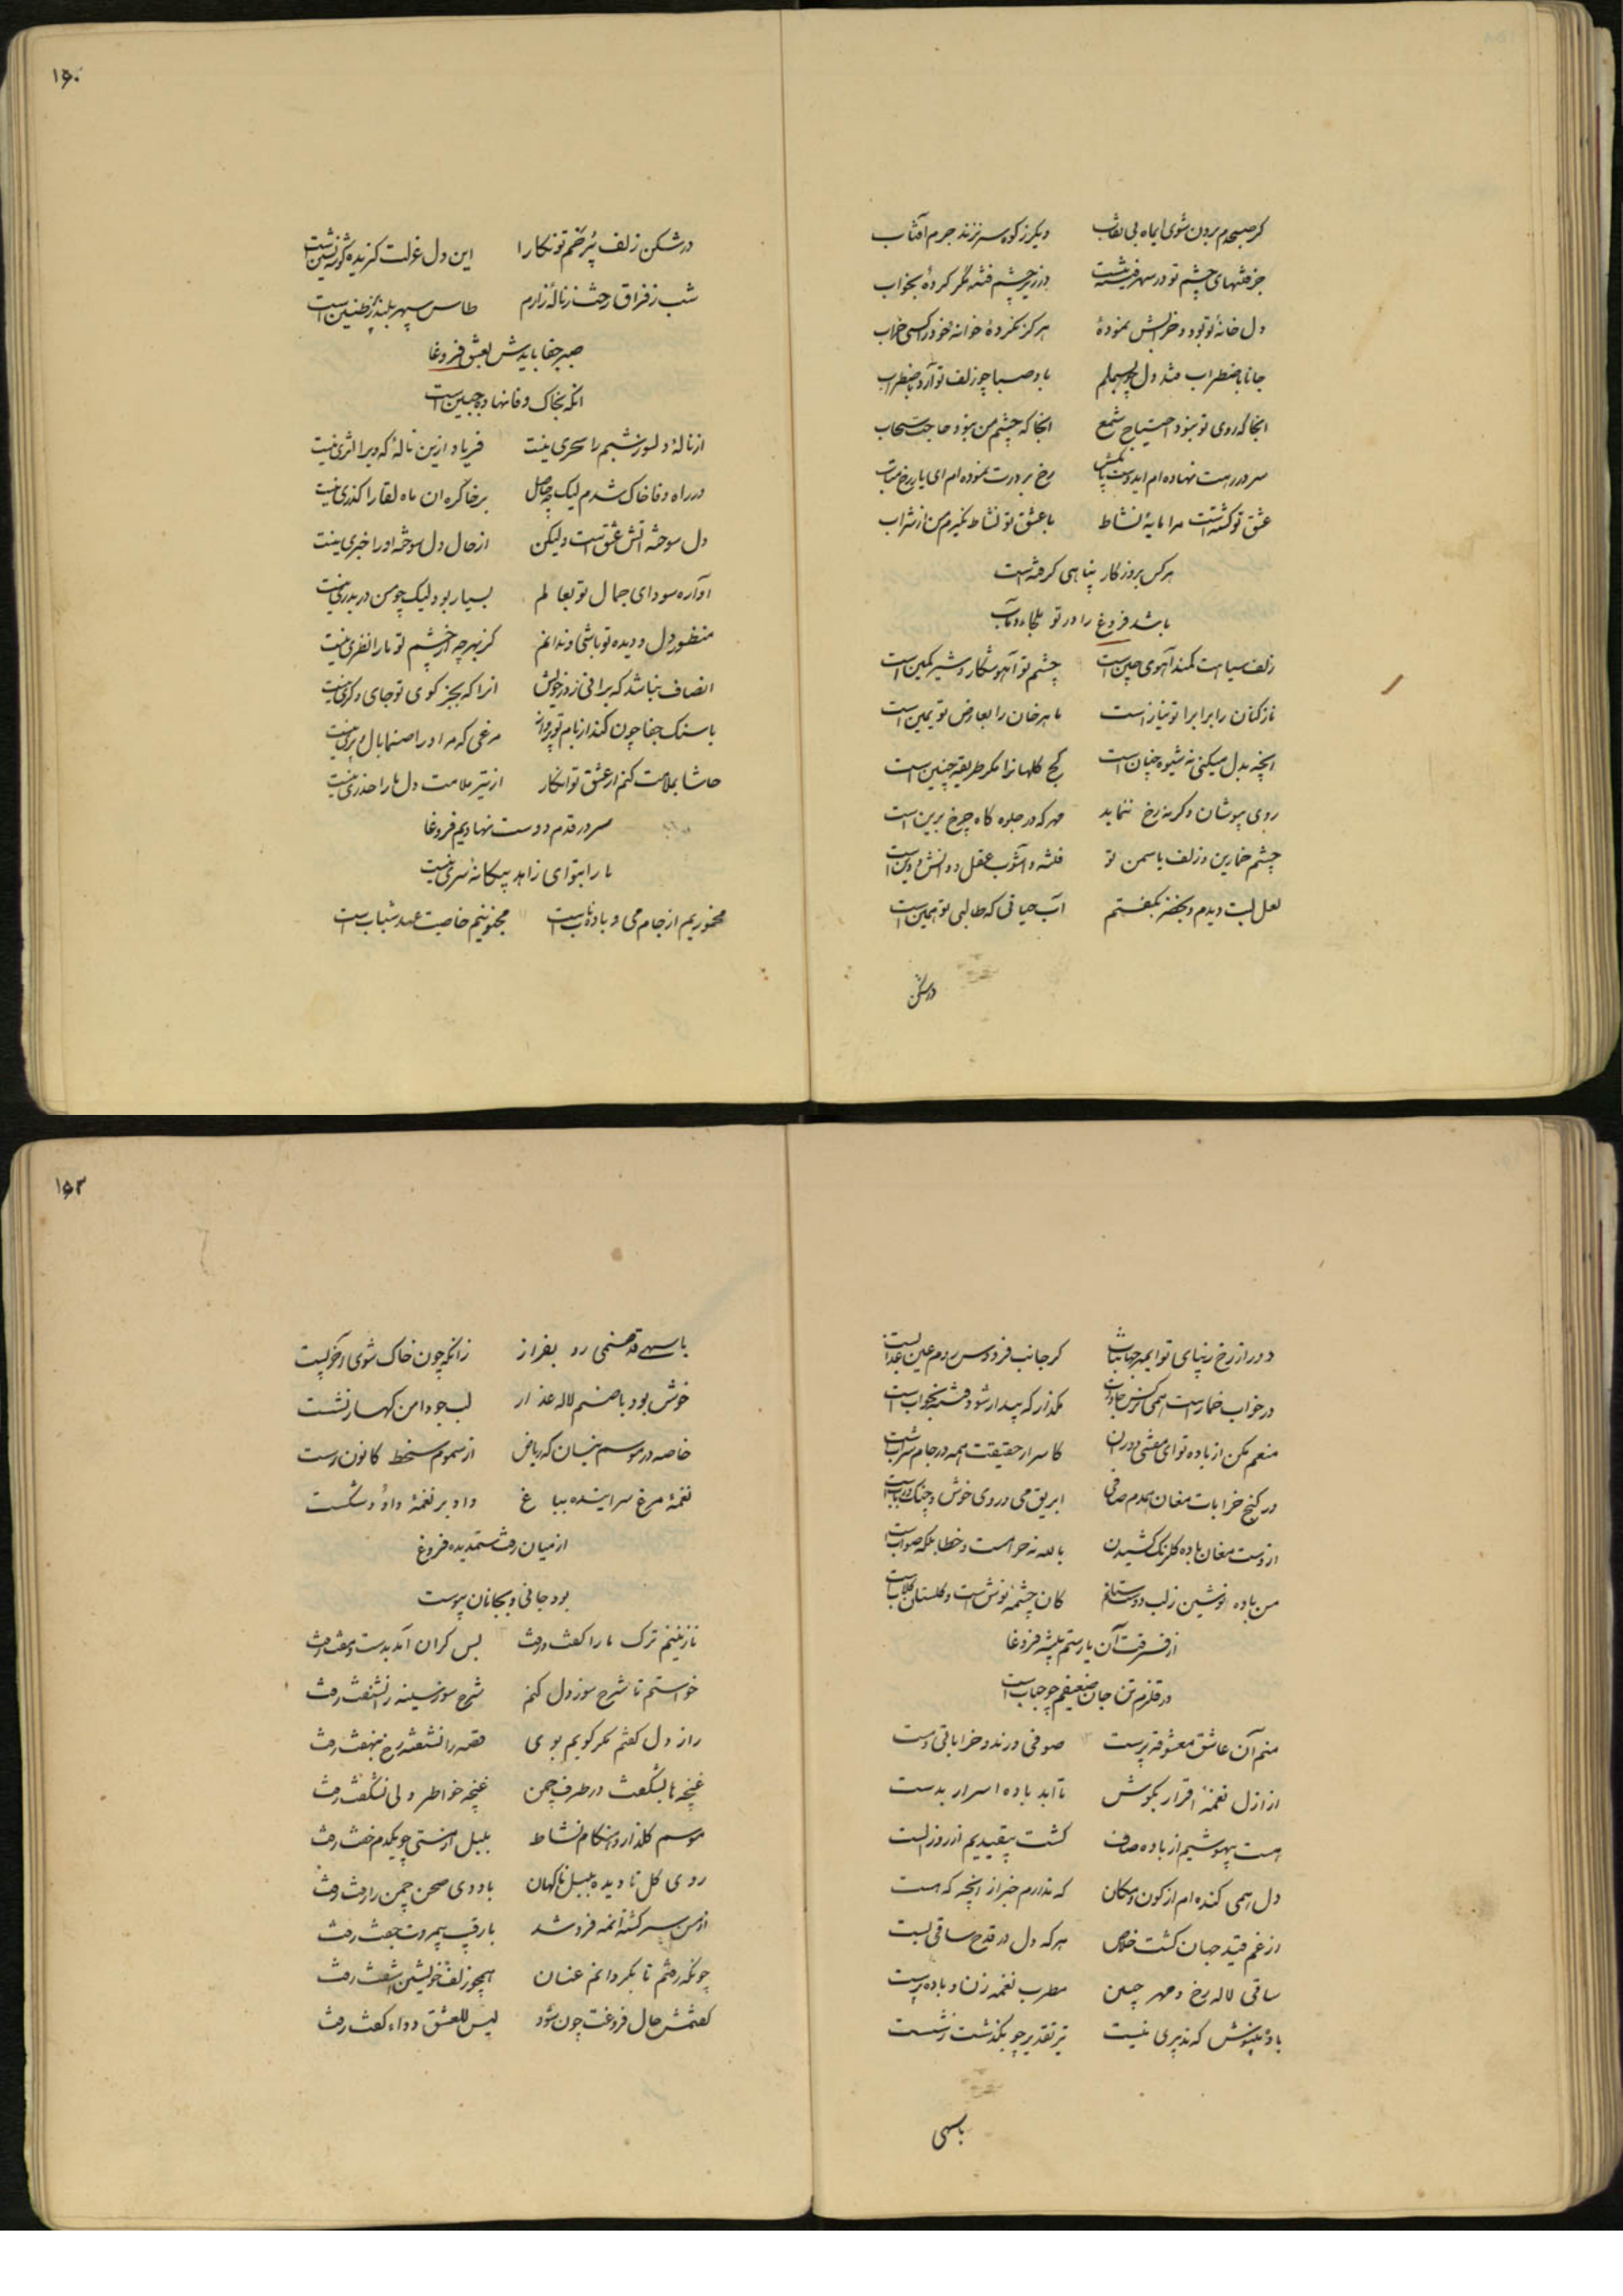 گر صبحدم برون شوی ایماه بی نقاب دیگر ز کوه سر نزند جرم آفتاب
جز فتنهای چشم تو در سهر فتنه نیست در زیر چشم فتنه مگر کردهٔ بخواب
دل خانهٔ تو بود و خرابش نمودهٔ هرگز نکردهٔ خوانه خود را کسی خراب
جانا باضطراب فتد دل چو بسملم باد صبا چو زلف تو آرد باضطراب
انجا که روی تو نبود احتیاج شمع انجا که چشم من نبود حاجت سحاب
سر در رهت نهاده ام ایدوست پا مکش رخ بر درت نموده ام ای یار رخ متاب
عشق تو کشته است مرا مایهٔ نشاط با عشق تو نشاط نگیرم من از شراب
هر کس بروزگار پناهی گرفته است
باشد فروغ را در تو ملجاء و مآب
زلف سیاهت کمند آهوی چین است چشم تو آهو شکار و شیر کمین است
ناز کنان را برابر ا تو نیاز است ماهرخان را بعارض تو یمین است
انچه بدل میکنی نه شیوه چنان است کج کلهانرا مگر طریقه چنین است
روی بپوشان وگرنه رخ ننماید مهر که در جلوه گاه چرخ برین است
چشم خمارین و زلف یاسمن تو فتنه و آشوب عقل و دانش و دین است
لعل لبت دیدم و بخضر بگفتم آب حیاتی که طالبی تو همین است
درشکن
۱۵۰
در شکن زلف پُر ز خم تو نگارا این دل عزلت گزیده گوشه نشین است
شب ز فراق رخت ز نالهٔ زارم طاس سپهر بلند پُر ز طنین است
صبر جفا بایدش بعشق فروغا
انکه بخاک وفا نهاده جبین است
از نالهٔ دلسوز شبم را سحری نیست فریاد ازین نالهٔ که ویرا اثری نیست
در راه وفا خاک شدم لیک چه حاصل بر خاک ره ان ماه لقا را گذری نیست
دل سوخته آتش عشق است ولیکن از حال دل سوخته او را خبری نیست
آواره سودای جمال تو بعالم بسیار بود لیک چو من دربدری نیست
منظور دل و دیده تو باشی و ندانم کز بهر چه از چشم تو ما را نظری نیست
انصاف نباشد که برانی ز در خویش انرا که بجز کوی تو جای دگری نیست
با سنک جفا چون کند از بام تو پرواز مرغی که مر او را صنما بال و پری نیست
حاشا بملامت کنم از عشق تو انکار از تیر ملامت دل ما را حذری نیست
سر در قدم دوست نهادیم فروغا
ما را بتو ای زاهد بیگانه سری نیست
مخموریم از جام می و باده ناب است مجنونیم خاصیت عهد شباب است
دور از رخ زیبای تو ایمهر جهانتاب گر جانب فردوس روم عین عذاب است
در خواب خمار است همی نرکس جادوت مگذار که بیدار شود فتنه بخواب است
منعم مکن از باده تو ای مفتی دوران کاسرار حقیقت همه در جام شراب است
در کنج خرابات مغان همدم صافی ابریق می و روی خوش و چنک و رباب است
از دست مغان باده گلرنک کشیدن بالله نه حرامست و خطا بلکه صواب است
من باده نوشین ز لب دوست ستانم کان چشمه نوش است و گلستان گلاب است
از فرقت آن یار ستم پیشه فروغا
در قلزم تن جان ضعیفم چو حباب است
منم آن عاشق معشوقه پرست صوفی و رند و خراباتی و مست
از ازل نغمهٔ اقرار بگوش تا ابد باده اسرار بدست
مست بیهوشیم از باده صاف گشت بیقیدیم از روز الست
دل همی کنده ام از کون و مکان که ندارم خبر از انچه که هست
از غم قید جهان گشت خلاص هر که دل در قدح ساقی بست
ساقی لاله رخ و مهر جبین مطرب نغمه زن و باده پرست
باده مینوش که تدبیری نیست تیر تقدیر چو بگذشت ز شست
باسهی
۱۵۲
با سهی قد صنمی رو بفراز زانکه چون خاک شوی در خور پست
خوش بود با صنم لاله عذار لب جو دامن کهسار نشست
خاصه در موسم نیسان که ریاض از سموم سخط کانون رست
نغمهٔ مرغ سراینده بباغ داد بر نغمهٔ داود شکست
از میان رفت ستمدیده فروغ
بود جانی و بجانان پیوست
نازنینم ترک ما را گفت و رفت بس گران آمد بدست و مفت و رفت
خواستم تا شرح سوز دل کنم شرح سوز سینه را نشنفت و رفت
راز دل گفتم مگر گویم بوی قصه را نشنفته رخ بنهفت و رفت
غنچه ها بشکفت در طرف چمن غنچه خاطر ولی نشکفت و رفت
موسم گلذار و هنکام نشاط بلبل از مستی چو یکدم خفت و رفت
روی گل نا دیده بلبل ناگهان باد دی صحن چمن را رفت و رفت
از من سر گشته انمه فرد شد با رقیب بیمروت جفت و رفت
چونکه رفتم تا بگردانم عنان همچو زلف خویشتن آشفت و رفت
گفتمش حال فروغت چون شود لیس للعشق دواء گفت و رفت